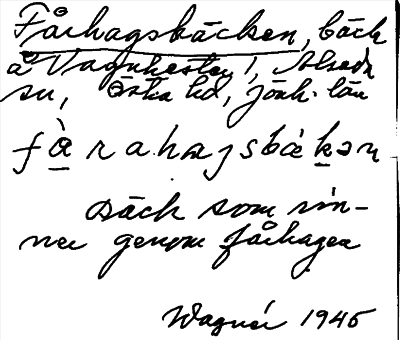 Fårhagsbäcken, bäck
å Vagnhester 1, Alseda
sn, Östra hd, Jönk. län
fà̱rahagsbäḵən
Bäck som rin-
ner genom fårhagen
Wagnér 1945